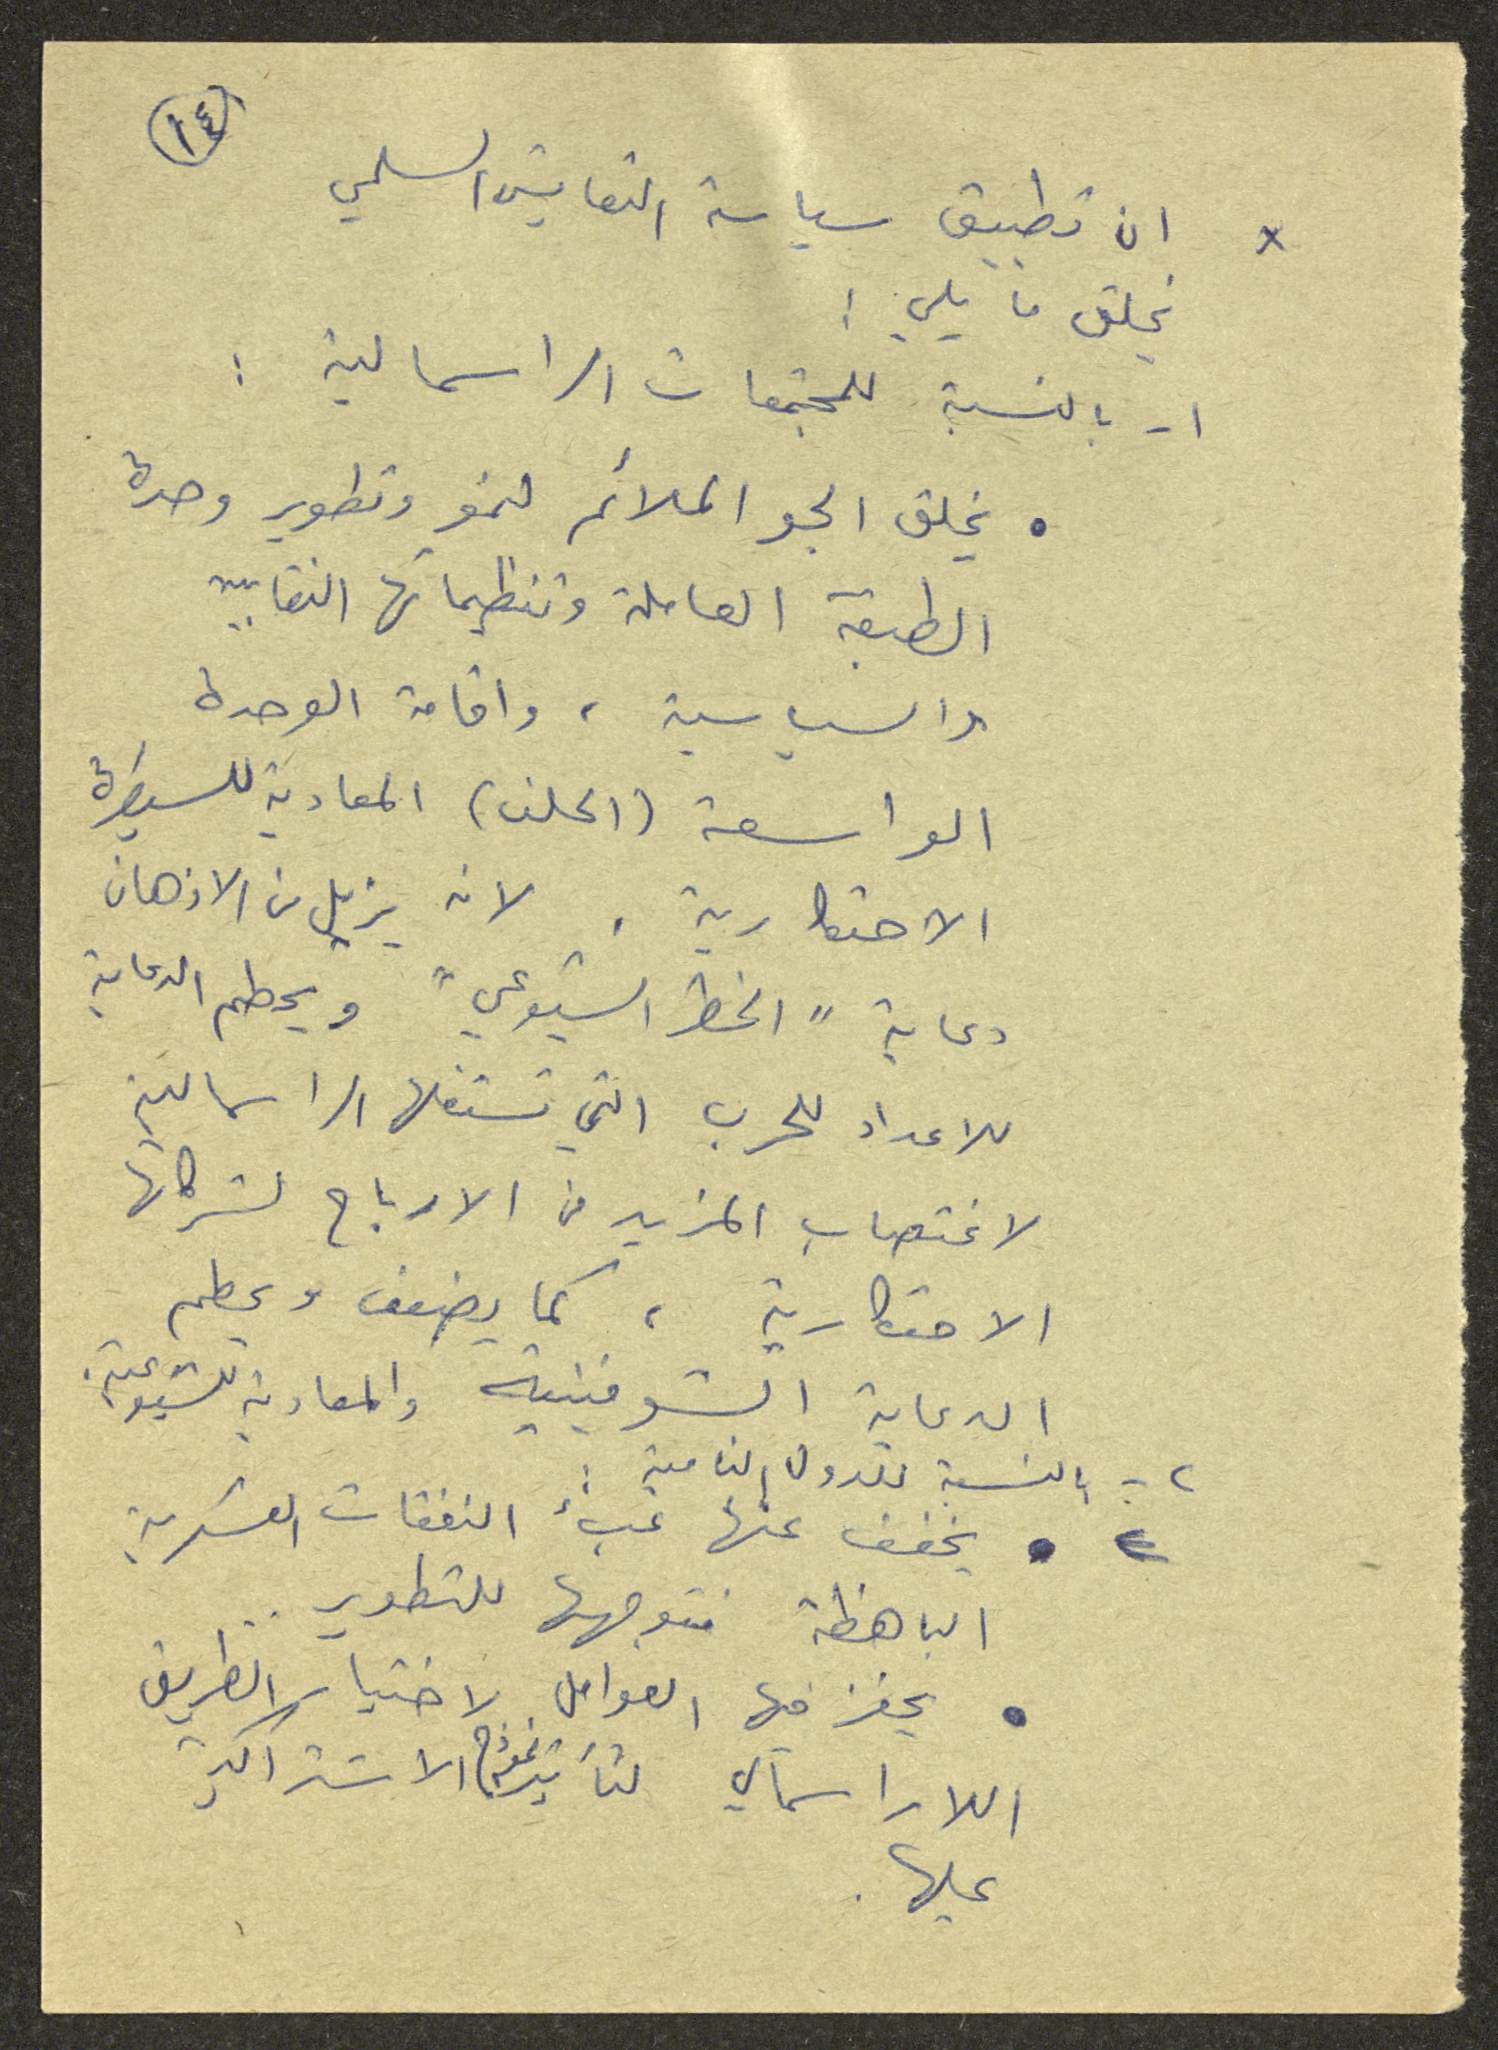 ١٤
× ان تطبيق سياسة التعايش السلمي
يخلق ما يلي :
١- بالنسبة للمجتمعات الراسمالية :
• يخلق الجو الملائم لنمو وتطوير وحدة
الطبقة العاملة وتنظيماتها النقابية
والسياسية ، واقامة الوحدة
الواسعة (الحلف) المعادية للسيطرة
الاحتكارية ، لانه يزيل من الاذهان
دعاية "الخطر الشيوعي" ويحطم الدعاية
للاعداد للحرب التي تستغلها الراسمالية
لاغتصاب المزيد من الارباح لشركاتها
الاحتكارية ، كما يضعف ويحطم
الدعاية الشوفينية والمعادية للشيوعية .
٢- بالنسبة للدول النامية :
• يخفف عنها عبء النفقات العسكرية
الباهظة فتوجهها للتطوير ..
• يحفز فيها العوامل لاختيار الطريق
اللاراسمالي لتأثير نموذج الاشتراكية
عليها .